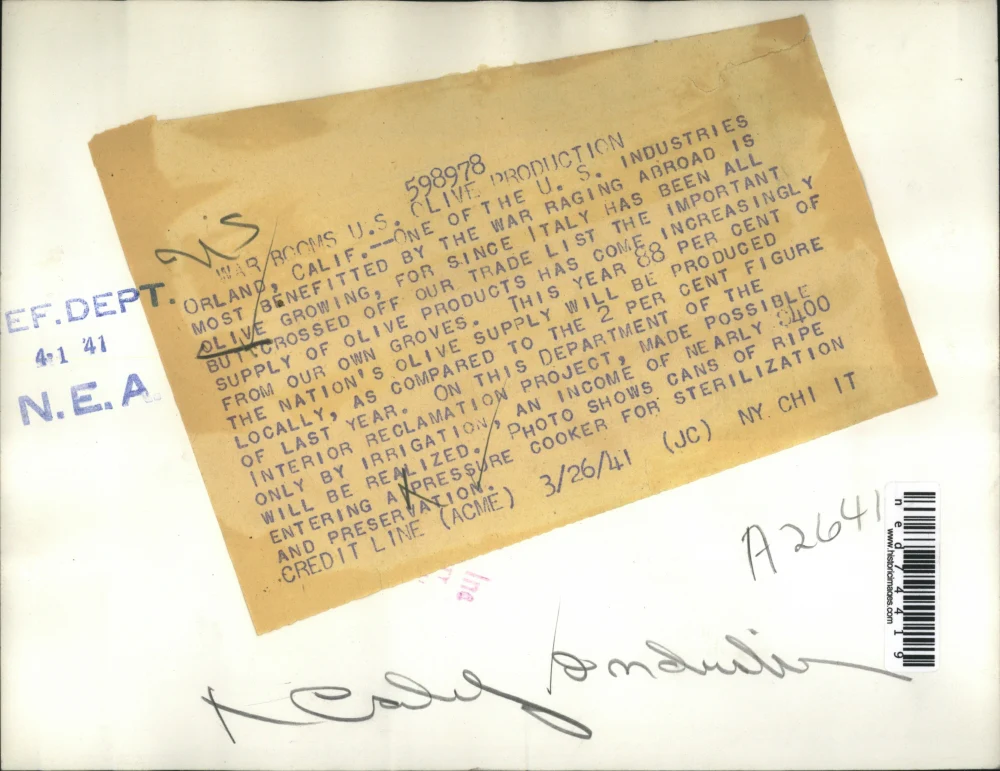 598978
WAR BOOMS U.S. OLIVE PRODUCTION
ORLAND, CALIF.--ONE OF THE U. S. INDUSTRIES
MOST BENEFITTED BY THE WAR RAGING ABROAD IS
OLIVE GROWING, FOR SINCE ITALY HAS BEEN ALL
BUT CROSSED OFF OUR TRADE LIST THE IMPORTANT
SUPPLY OF OLIVE PRODUCTS HAS COME INCREASINGLY
FROM OUR OWN GROVES. THIS YEAR 88 PER CENT OF
THE NATION'S OLIVE SUPPLY WILL BE PRODUCED
LOCALLY, AS COMPARED TO THE 2 PER CENT FIGURE
OF LAST YEAR. ON THIS DEPARTMENT OF THE
INTERIOR RECLAMATION PROJECT, MADE POSSIBLE
ONLY BY IRRIGATION, AN INCOME OF NEARLY $400
WILL BE REALIZED. PHOTO SHOWS CANS OF RIPE
ENTERING A PRESSURE COOKER FOR STERILIZATION
AND PRESERVATION.
CREDIT LINE (ACME) 3/26/41 (JC) NY CHI IT
EF. DEPT.
4-1 '41
N. E. A.
A2641
ned74419
www.historicimages.com